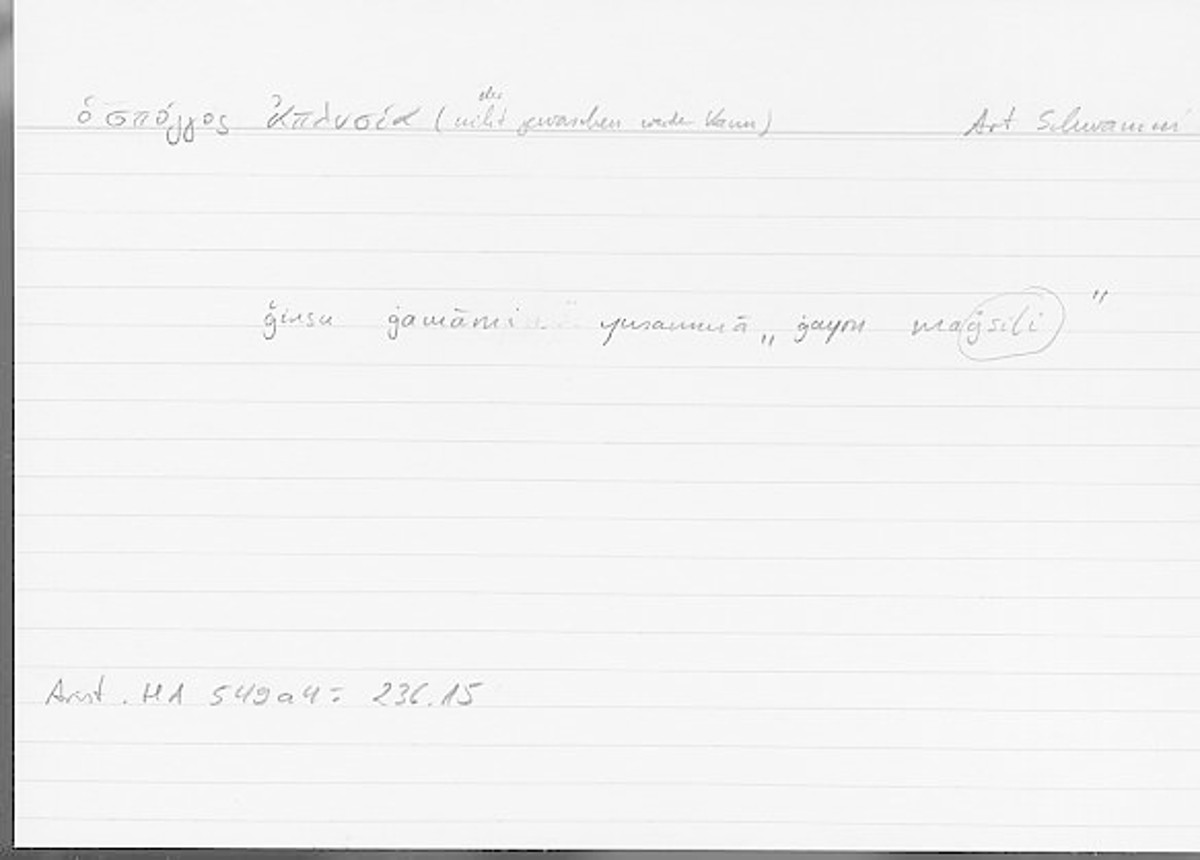 ὁ σπόγγος ἀπλυσία (der nicht gewaschen werden kann) Art Schwamm
ǧinsu ġamāmi yusammā „ġayru maġsūli"
Arist. HA 549a4 = 236.15